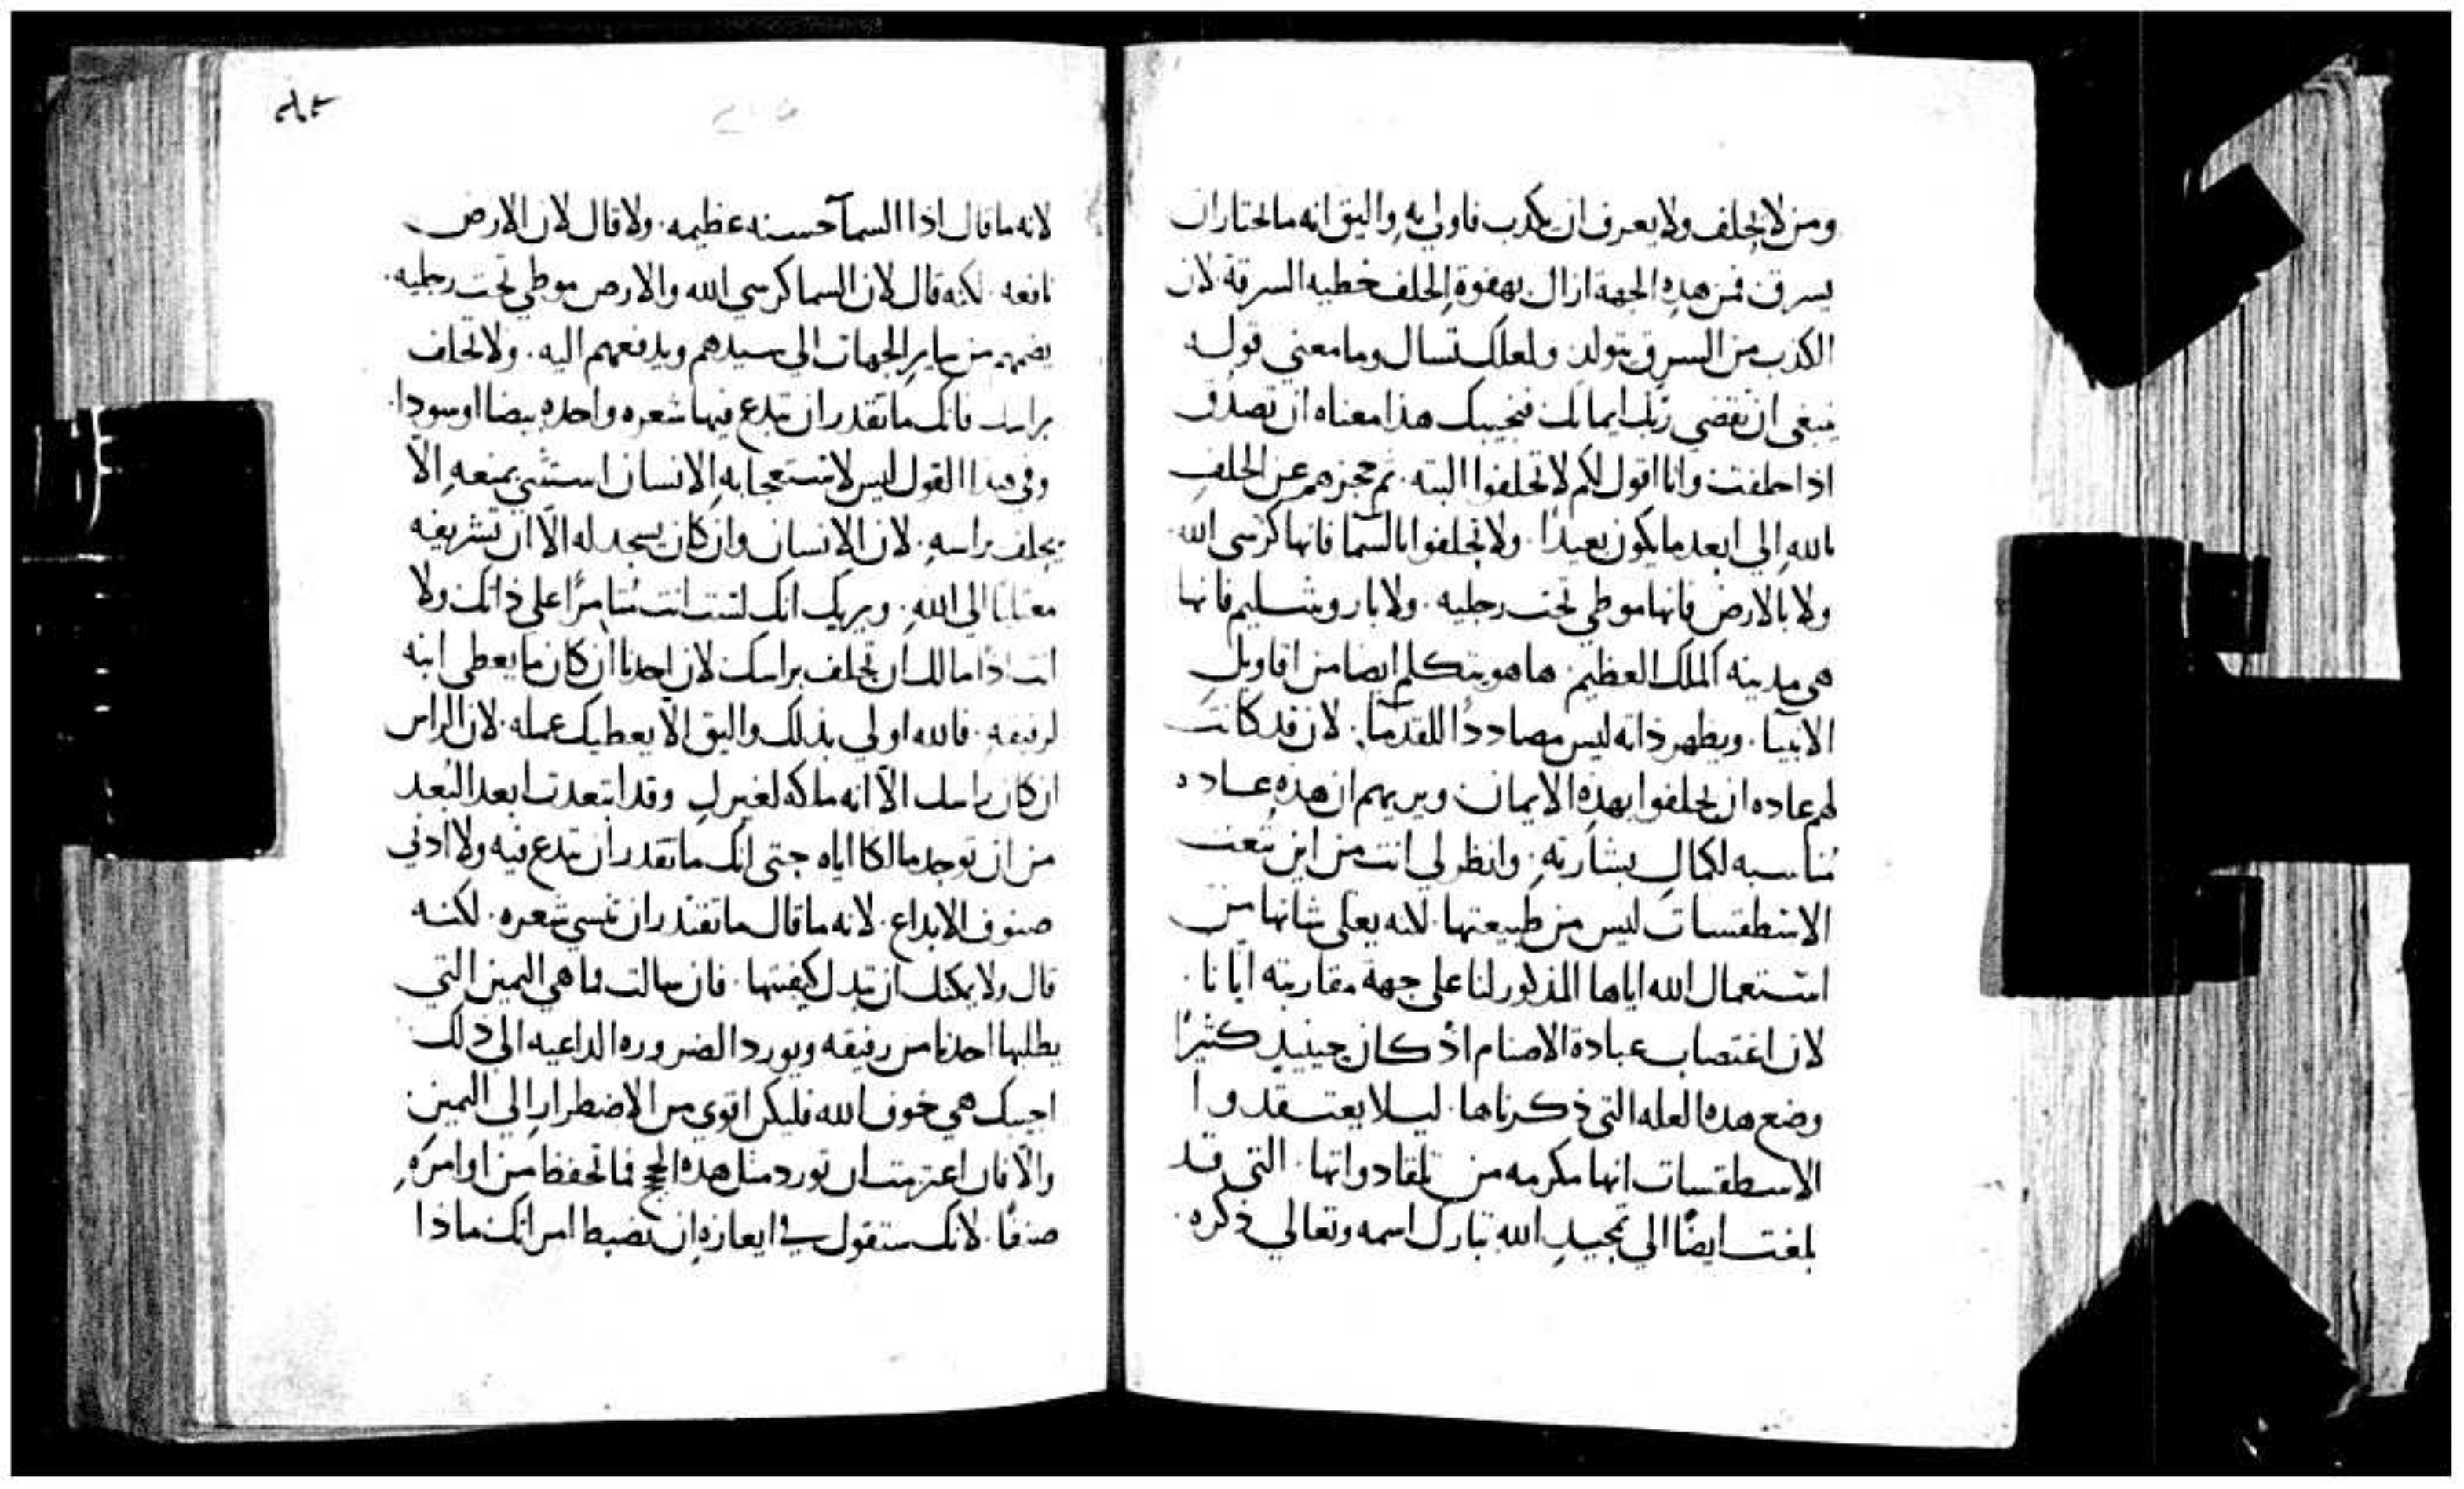 ومن لا يحلف ولا يعرف ان يكدب فاولي به واليق انه ما يختار ان
يسرق فمن هذه الجهة ازال بهفوة الحلف خطيه السرقة لان
الكذب من السرق يتولد ولعلك تسال وما معني قوله
ينبغي ان تقضي ربك ايمانك فنجيبك هذا معناه ان تصدق
اذا حلفت وانا اقول لكم لا تحلفوا البته . ثم حجزهم عن الحلف
بالله الي ابعد ما يكون بعيدًا . ولا تحلفوا بالسما فانها كرسي الله .
ولا بالارض فانها موطي تحت رجليه . ولا باروشليم فانها
هي مدينه الملك العظيم . ها هو يتكلم ايضا من اقاويل
الانبيا . ويظهر ذاته ليس مصاددًا للقدما . لان قد كانت
لهم عاده ان يحلفوا بهذه الايمان ويريهم ان هذه عاده
مناسبه لكمال بشارته . وانظر لي انت من اين نعت
الاسطقسات ليس من طبيعتها . لكنه يعلي شانها من
استعمال الله اياها المذكور لنا على جهة مقاربته ايانا .
لان اغتصاب عبادة الاصنام اذ كان حينيدٍ كثيرًا
وضع هده العله التي ذكرناها . ليلا يعتقدوا
الاسطقسات انها مكرمه من تلقا دواتها . التي قد
بلغت ايضًا الي تمجيد الله تبارك اسمه وتعالي ذكره .
لانه ما قال اذا السمآ حسنه عظيمه . ولا قال لان الارض
نافعه . لكنه قال لان السما كرسي الله والارض موطي تحت رجليه .
يضمهم من ساير الجهات الي سيدهم ويدفعهم اليه . ولا تحلف
براسك فانك ما تقدر ان تبدع فيها شعره واحده بيضا او سودا .
وفي هذا القول ليس لانه استعجابه الانسان استثني بمنعه الّا
يحلف براسه . لان الانسان وان كان يسجد له الّا ان تشريفه
الي الله . ويريك انك لست انت على ذاتك ولا
انت اذًا مالك ان تحلف براسك لان احدنا ان كان ما يعطي ابنه
لرفيقه . فالله اولي بذلك واليق الا يعطيك عمله . لان الراس
ان كان راسك الّا انه ملكه لغيرك وقد ابتعدت ابعد البُعد
من ان توجد مالكا اياه حتى انك ما تقدر ان تبدع فيه ولا ادني
صنوف الابداع . لانه ما قال ما تقتدر ان تنسي شعره . لكنه
قال ولا يمكنك ان تبدل كيفيتها . فان سالت فما هي اليمين التي
يطلبها احدنا من رفيقه ويورد الضروره الداعيه الي ذلك
اجيبك هي خوف الله فليكن اقوي من الاضطرار الي اليمين
والّا فان اعتزمت ان تورد مثل هده الحجج فما تحفظ من اوامره
صنفًا . لانك ستقول في ايعازه ان تضبط امراتك ماذا